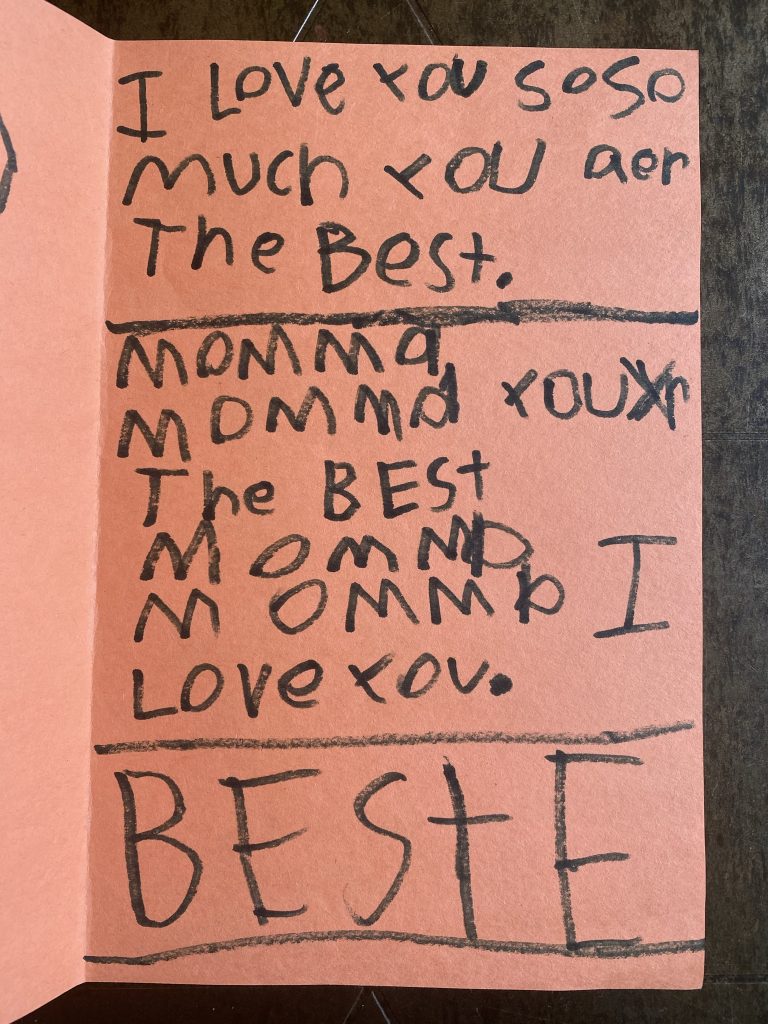 I Love YOU SoSo
Much YOU aer
The Best.
MOMMa
MOMMa YOU r
The BESt
MOMMa
MOMMa I
Love YOU.
BEStE